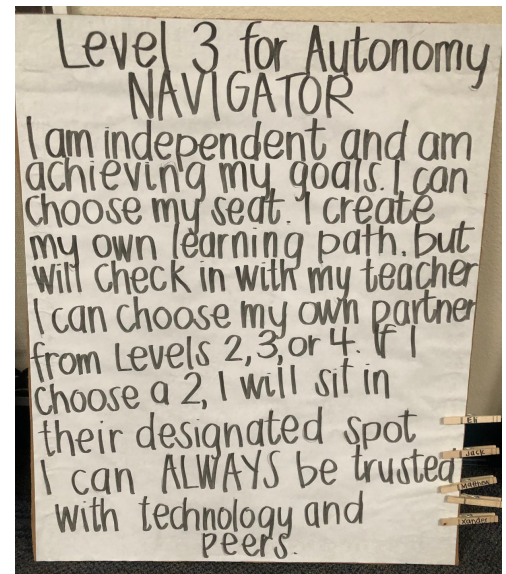 Level 3 for Autonomy
NAVIGATOR
I am independent and am
achieving my goals. I can
choose my seat. I create
my own learning path, but
will check in with my teacher
I can choose my own partner
from Levels 2, 3, or 4. If I
choose a 2, I will sit in
their designated spot
I can ALWAYS be trusted
with technology and
peers.
Eli
Jack
Xander